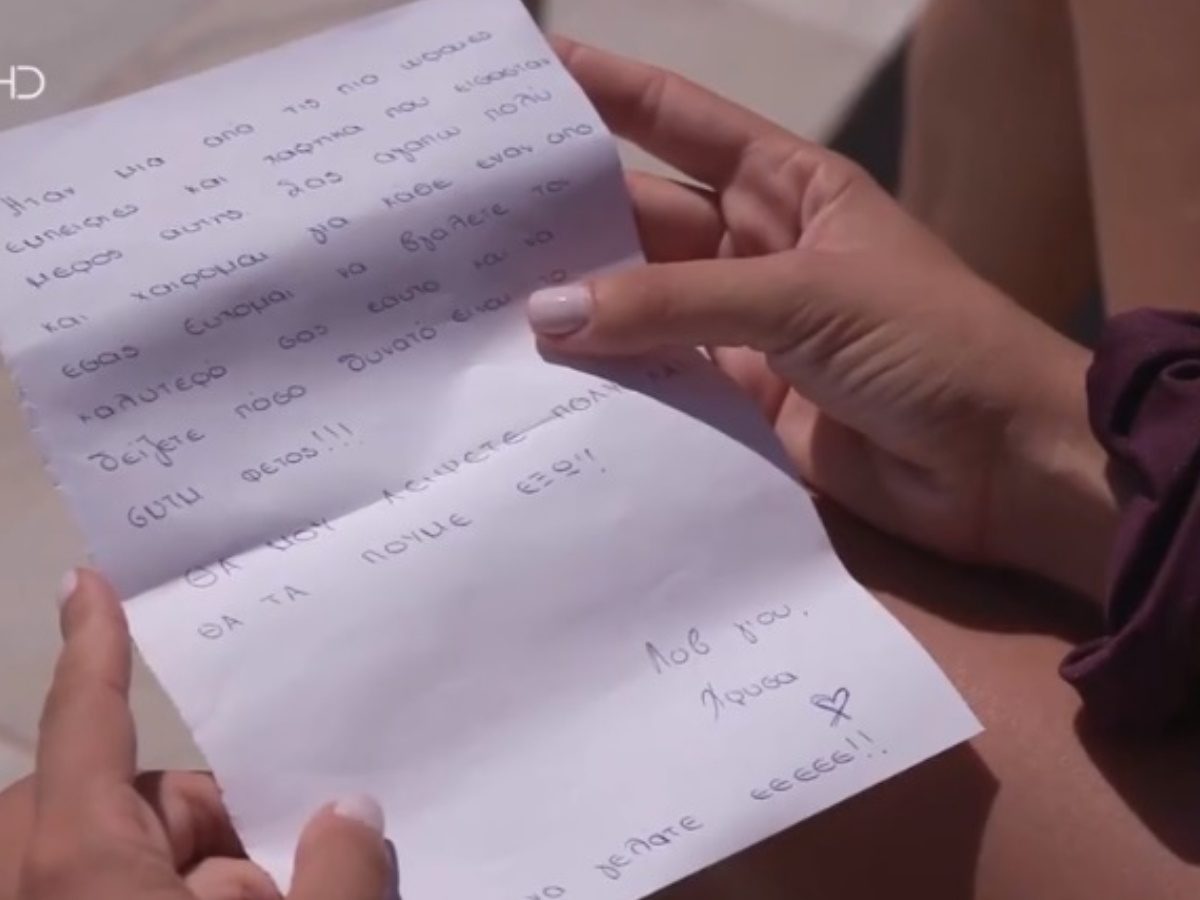 HD
Ήταν μια από τις πιο ωραιες
εμπειριες και χαρηκα που εισασταν
μερος αυτης. Σας αγαπω πολύ
και χαιρομαι για καθε εναν απο
εσας ευχομαι να βγαλετε τον
καλυτερό σας εαυτο και να
δείξετε πόσο δυνατό ειναι το
GNTM φετος!!!
ΘΑ ΜΟΥ ΛΕΙΨΕΤΕ ΠΟΛΥ ΚΑΙ
ΘΑ ΤΑ ΠΟΥΜΕ ΕΞΩ!!
Λοβ γιου,
Χρυσα
να γελατε εεεεε!!